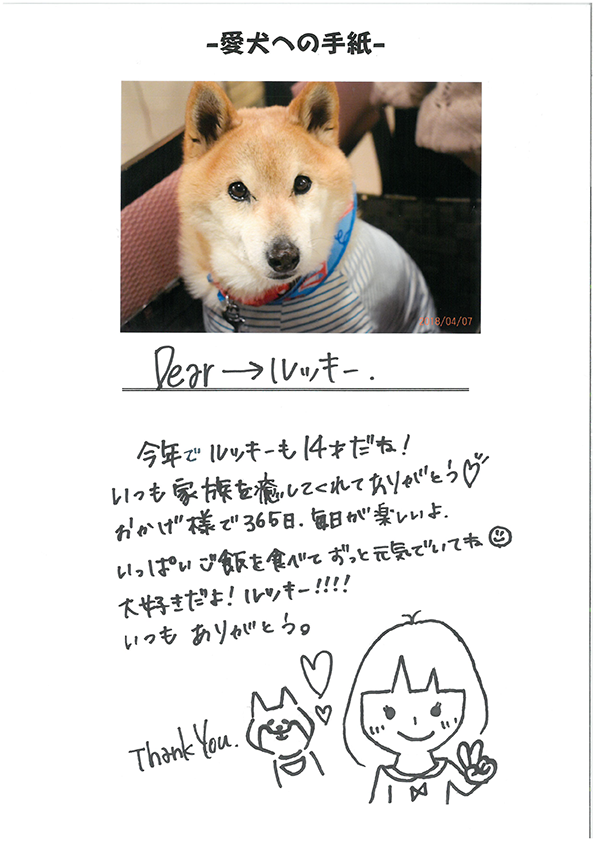 -愛犬への手紙-
18/04/07
Dear→ルッキー.
今年でルッキーも14才だね!
いつも家族を癒してくれてありがとう♡
おかげ様で365日、毎日が楽しいよ.
いっぱいご飯を食べてずっと元気でいてね☺
大好きだよ!ルッキー!!!!
いつもありがとう。
Thank You.